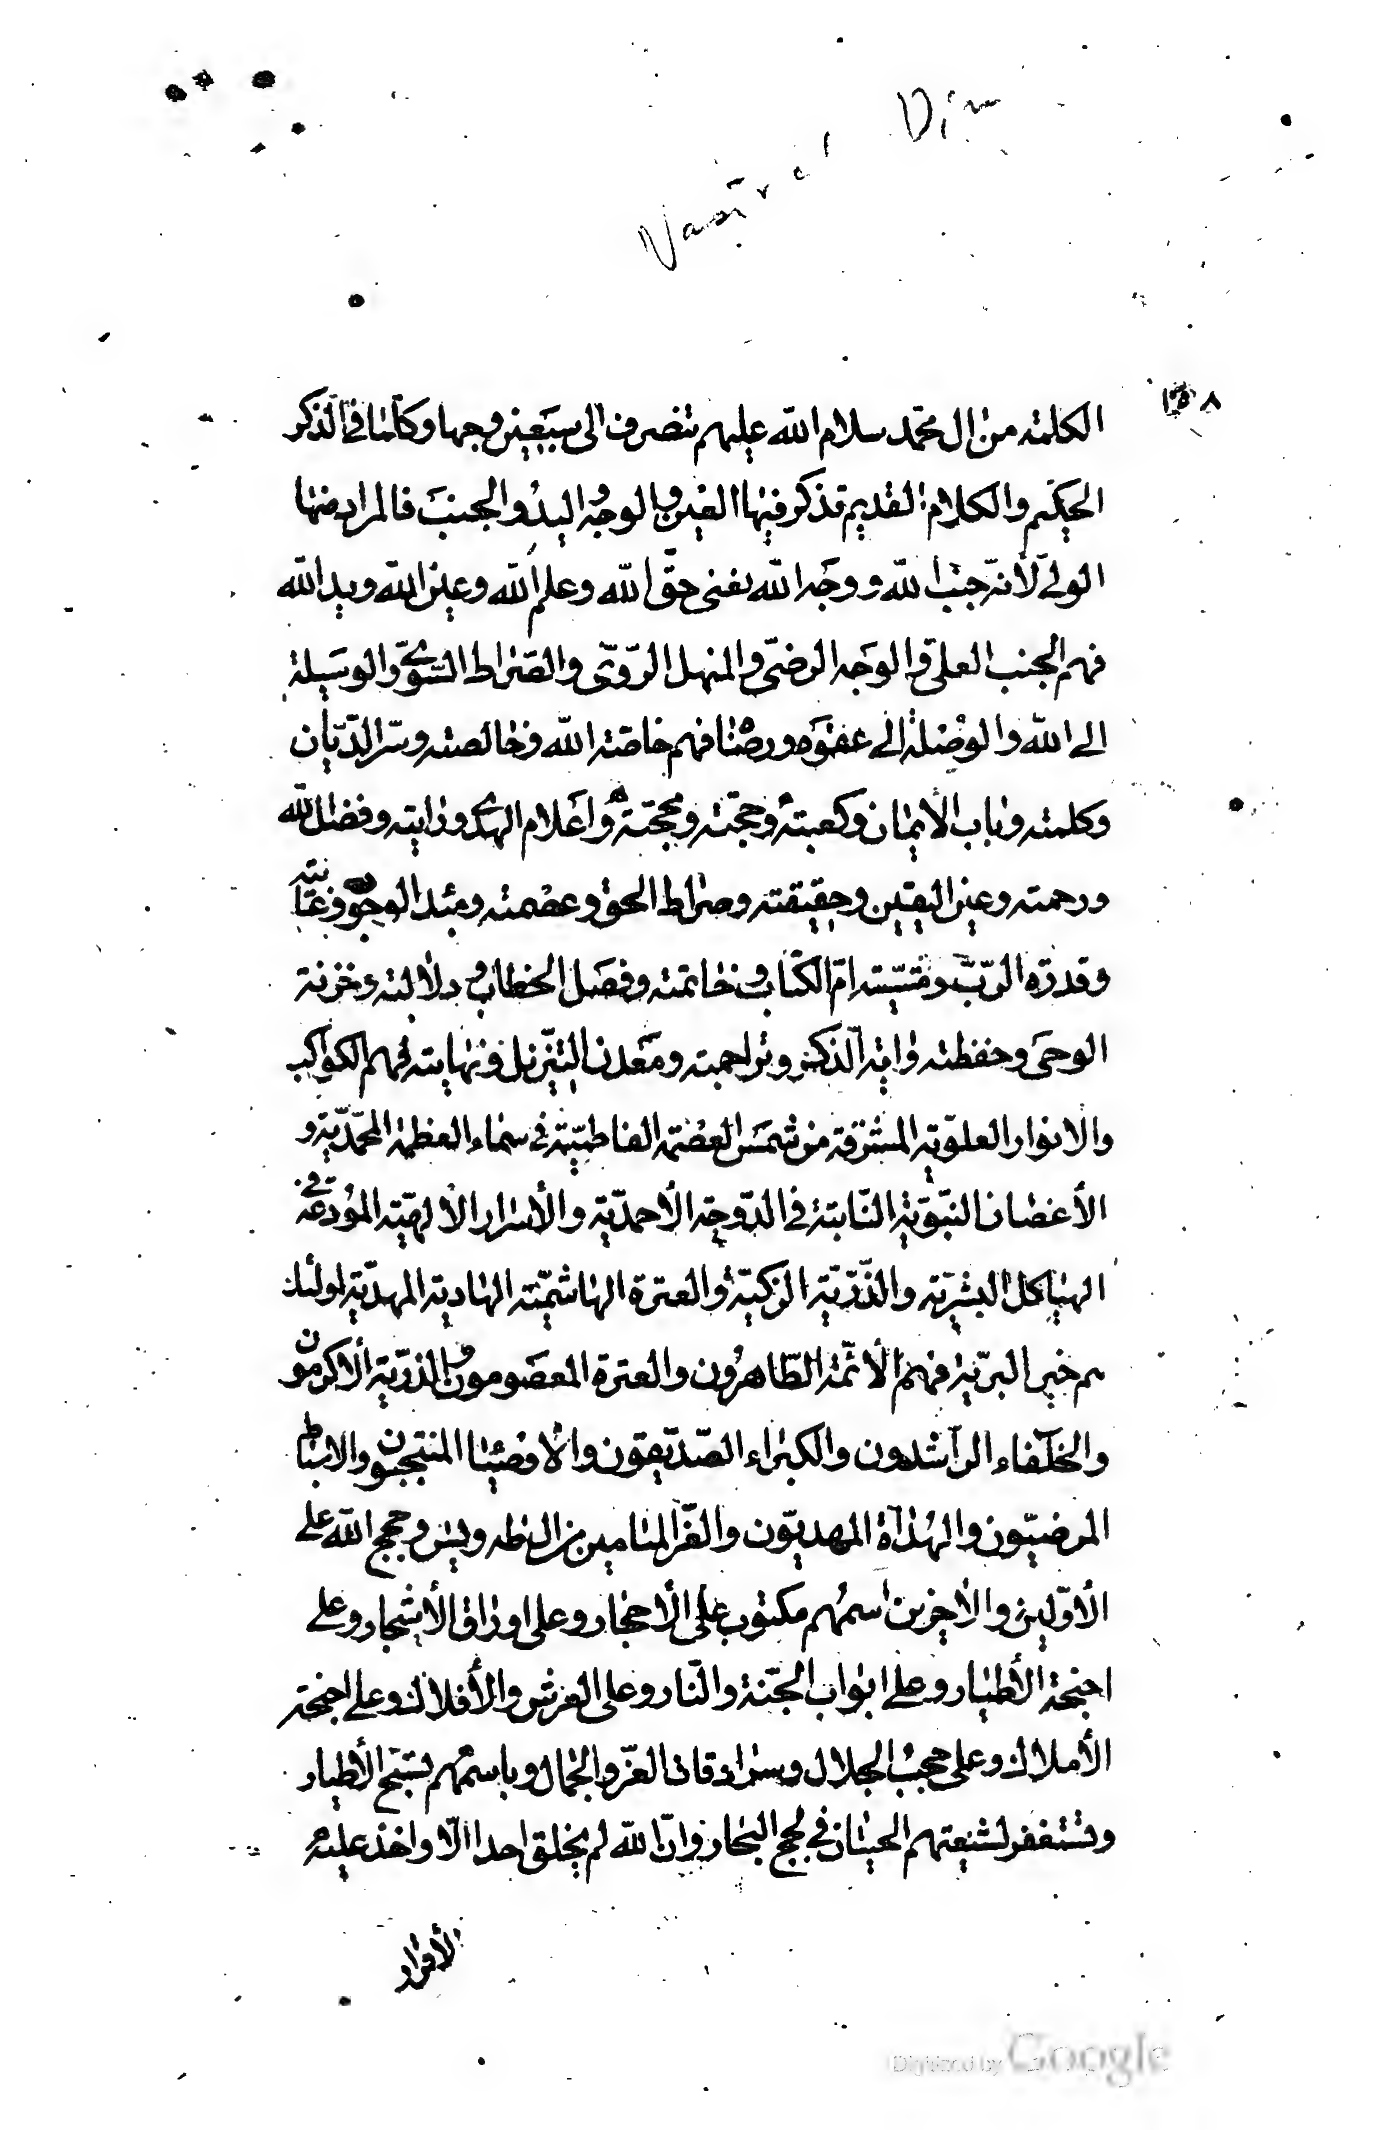 Nasir al Din
١٥٨
الكلمة من ال محمّد سلام الله عليهم تتصرف الى سبعين وجها وكلّما في الذكر
الحكيم والكلام القديم تذكر فيها العين والوجه واليد والجنب فالمراد منها
الولي لأنّه جنب الله ووجه الله يعنى حقّ الله وعلم الله وعين الله ويد الله
فهم الجنب العلي والوجه الرضيّ والمنهل الرّويّ والصّراط السّويّ والوسيلة
الى الله والوصلة الى عفوه ورضا فهم خاصّة الله وخالصته وسرّ الدّيّان
وكلمته وباب الأيمان وكعبته وحجّته ومحجّته واعلام الهدى ورايته وفضل الله
ورحمته وعين اليقين وحقيقته وصراط الحق وعصمته ومبدء الوجود وغايته
وقدرة الرّبّ ومشيّته امّ الكتاب وخاتمته وفصل الخطاب ودلالته وخزنة
الوحى وحفظته واية الذكر وتراجمته ومعدن التنزيل ونهايته فهم الكواكب
والانوار العلويّة المشرقة من شمس العصمة الفاطميّة في سماء العظمة المحمّديّة و
الأغصان النبّويّة النّابتة في الدّوحة الأحمديّة والأسرار الألهيّة المودعة في
الهياكل البشريّة والذّرّيّة الزكيّة والعترة الهاشميّة الهادية المهديّة اولئك
هم خير البريّة فهم الأئمّة الطّاهرون والعترة المعصومون والذرّيّة الأكرمون
والخلفاء الرّاشدون والكبراء الصّدّيقون والأوصيا المنتجبون والاسباط
المرضيّون والهداة المهديّون والغرّ الميامين من ال طه ويس وحجج الله على
الأوّلين والأخرين اسمهم مكتوب على الأحجار وعلى اوراق الأشجار وعلى
اجنحة الأطيار وعلى ابواب الجنّة والنّار وعلى العرش والأفلاك وعلى اجنحة
الأملاك وعلى حجب الجلال وسرادقات العزّ والجمال وباسمهم تسبّح الأطيار
وتستغفر لشيعتهم الحيتان في لجج البحار وانّ الله لم يخلق احدا الّا واخذ عليه
الأقرار
Digitized by Google